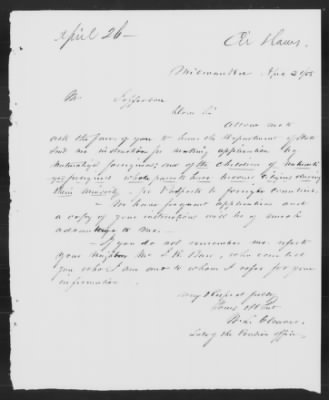 April 26 —
Milwaukee Apr 24/65
Mr. Jefferson
Dear Sir
Allow me to
ask the favor of you to have the Department of State
send me instructions for making application by
naturalized foreigners, and of the children of naturali-
zed foreigners whose parents have become citizens during
their minority — for Passports to foreign countries.
— We have frequent application and
a copy of your instructions will be of much
advantage to me —
— If you do not remember me, refer to
your neighbor Mr. J. R. who can tell
you who I am and to whom I refer for your
information.
Very Respectfully
Yours
Late of the Pension Office